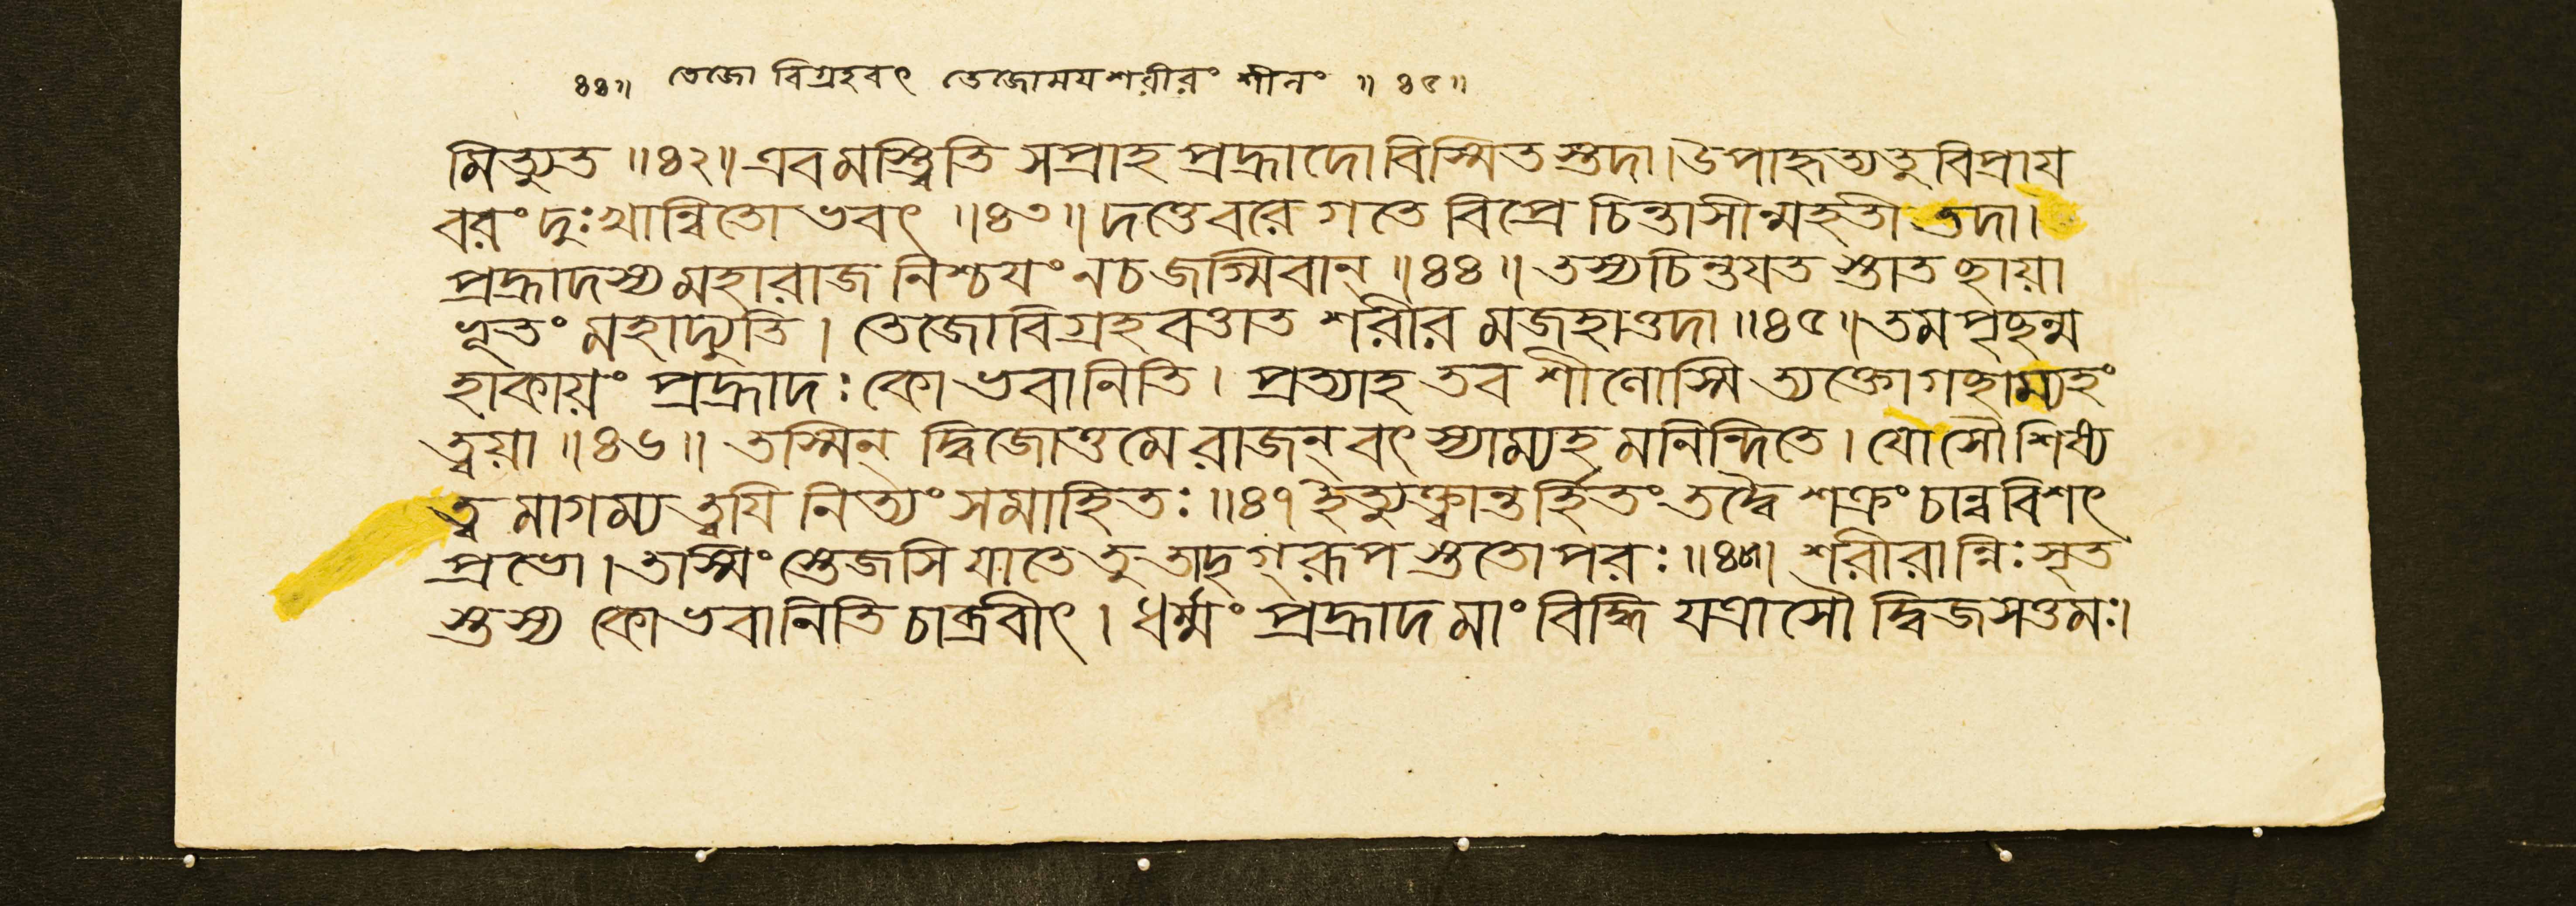 ৪৪॥ তেজো বিগ্রহবৎ তেজোময শরীরং শীলং ॥ ৪৫॥
মিত্যুত ॥৪২॥ এবমস্ত্বিতি সপ্রাহ প্রহ্লাদো বিস্মিতস্তদা। উপাহৃত্য তু বিপ্রায
বরং দুঃখান্বিতোভবৎ ॥৪৩॥ দত্তে বরে গতে বিপ্রে চিন্তাসীন্মহতী তদা।
প্রহ্লাদস্য মহারাজ নিশ্চযং নচ জগ্মিবান্ ॥৪৪॥ তস্য চিন্তযতস্তাত ছায়া
ভূতং মহাদ্যুতি। তেজোবিগ্রহবত্তাত শরীর মজহাত্তদা ॥৪৫॥ তমপৃছন্ম
হাকায়ং প্রহ্লাদঃ কো ভবানিতি। প্রত্যাহ তব শীলোস্মি ত্যক্তো গছাম্যহং
ত্বয়া ॥৪৬॥ তস্মিন্ দ্বিজোত্তমে রাজন্ বৎস্যাম্যহ মনিন্দিতে। যোসৌ শিষ্য
ত্ব মাগম্য ত্বযি নিত্যং সমাহিতঃ ॥৪৭ ইত্যুক্ত্বান্তর্হিতং তদ্বৈ শক্রং চান্ববিশৎ
প্রভো। তস্মিংস্তেজসি যাতে তু তাদৃগ্রূপ স্ততোপরঃ ॥৪৮॥ শরীরান্নিঃসৃত
স্তস্য কো ভবানিতি চাব্রবীৎ। ধর্ম্মং প্রহ্লাদ মাং বিদ্ধি যত্রাসৌ দ্বিজসত্তমঃ।